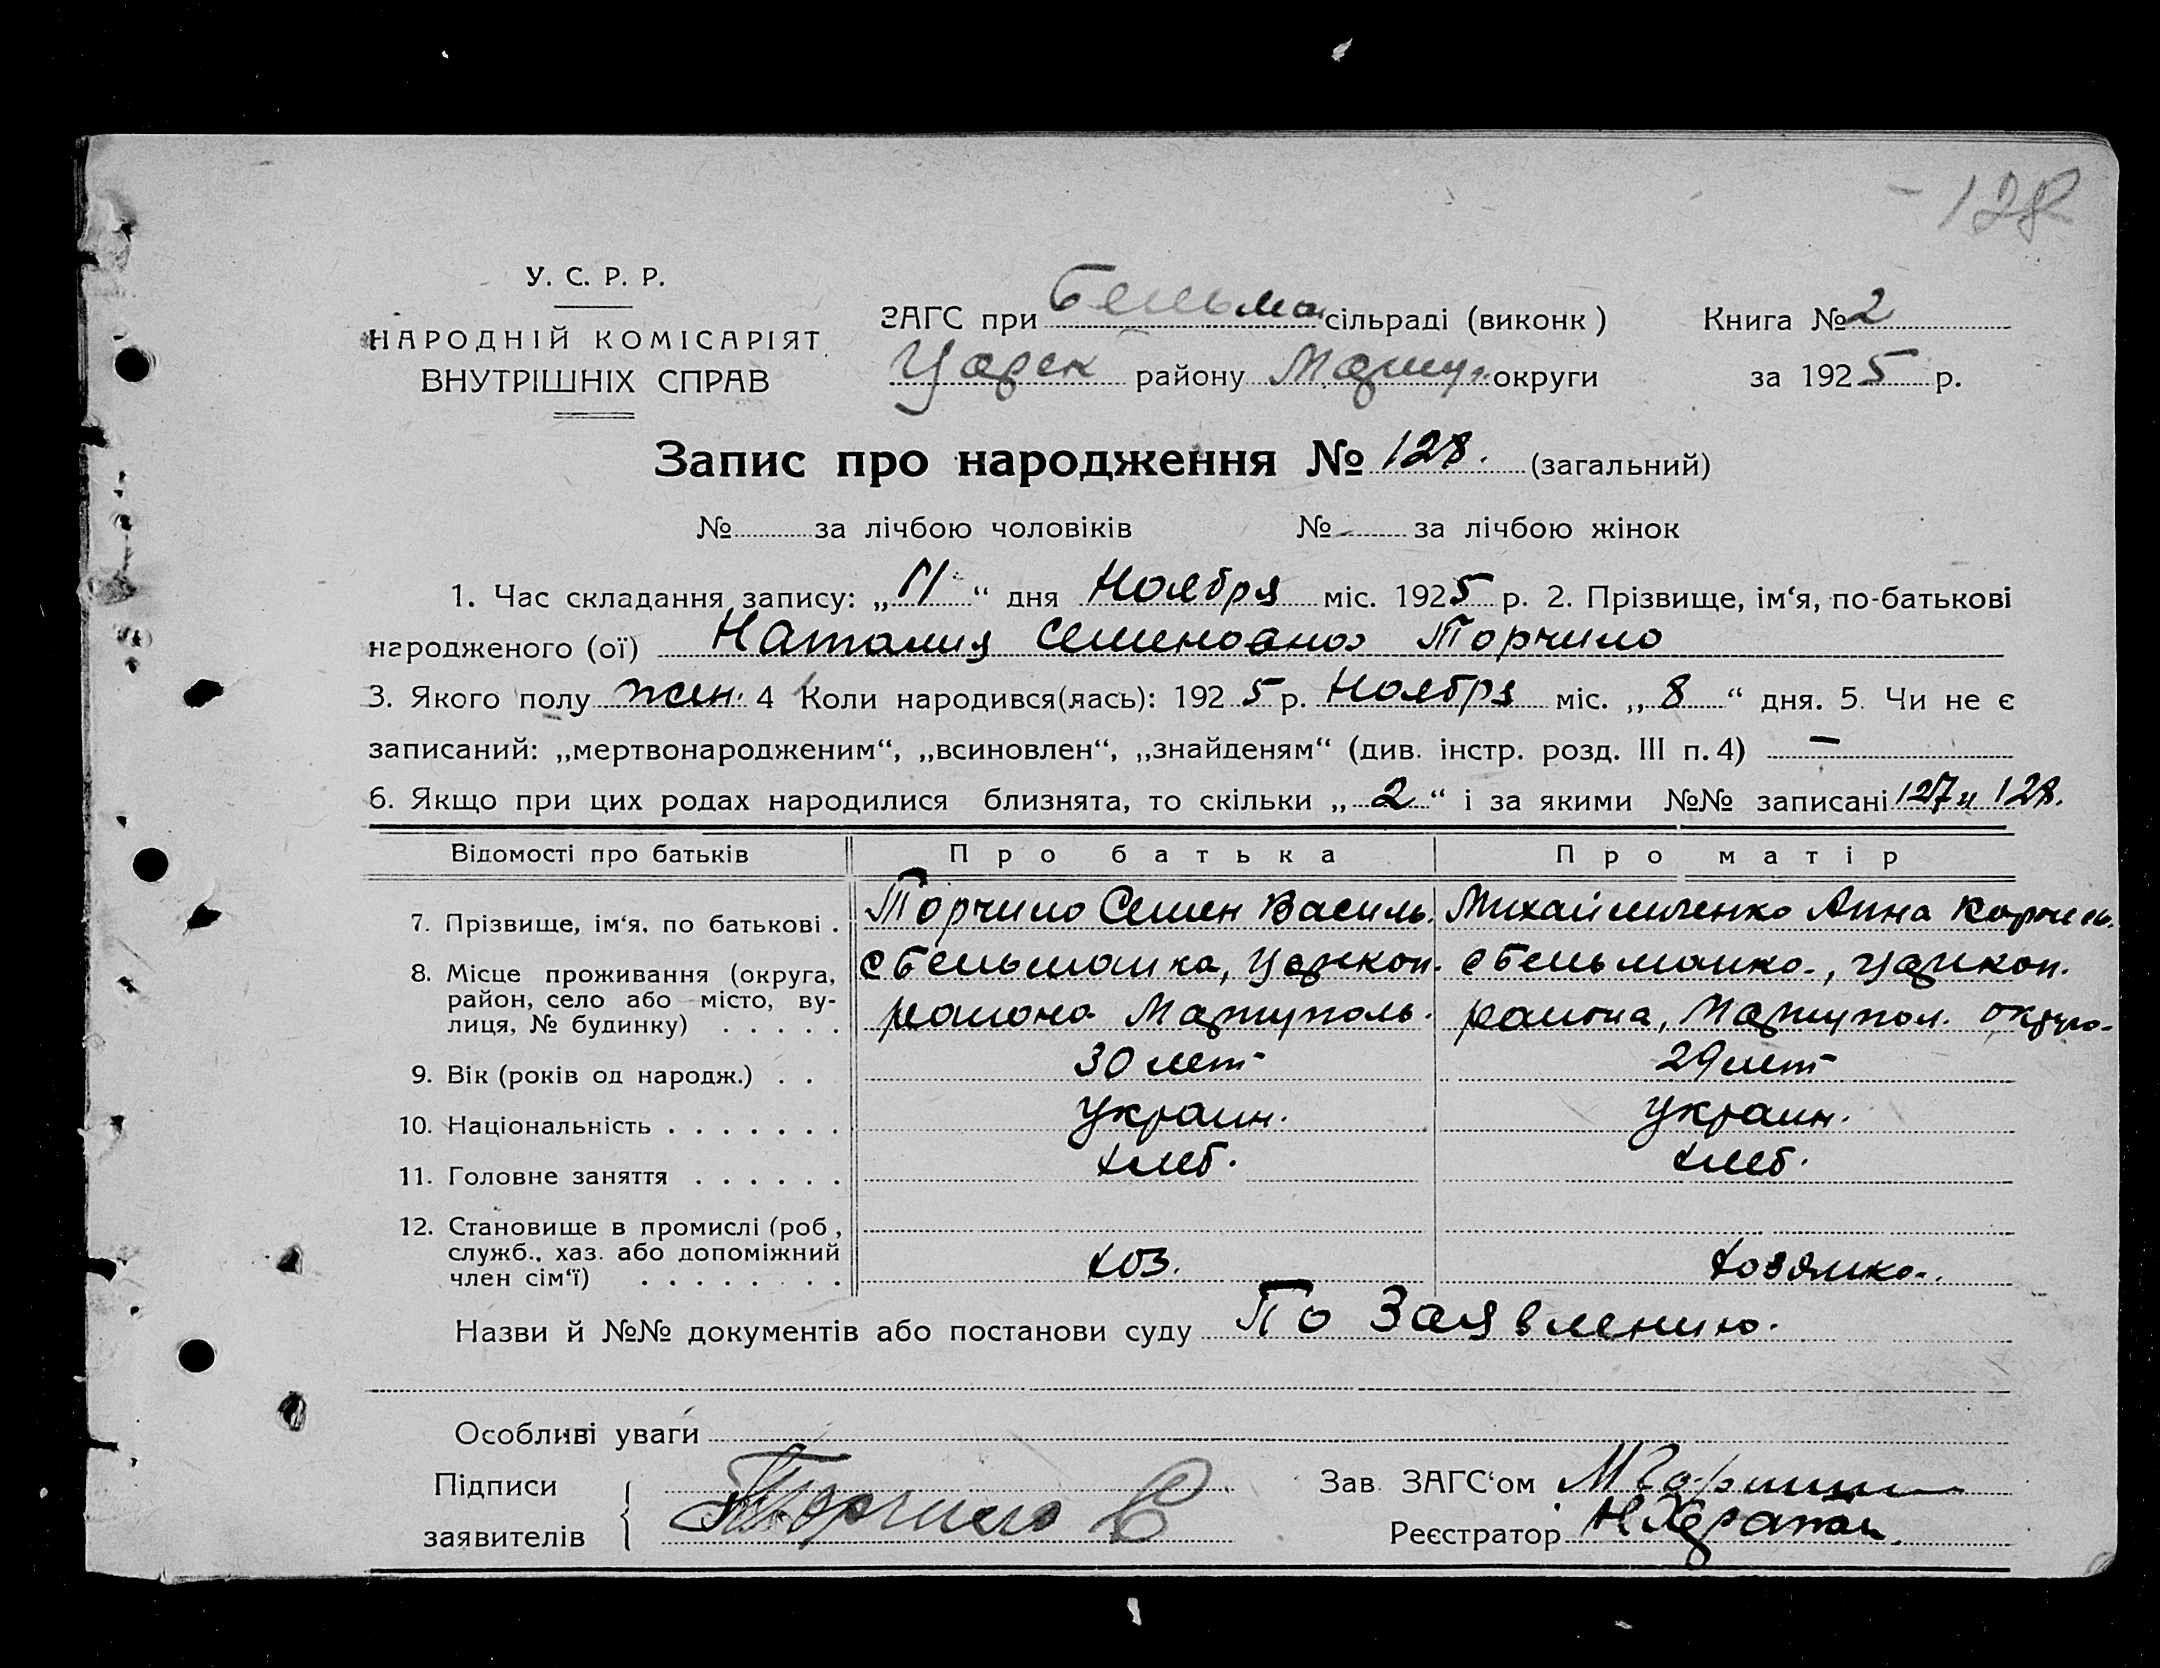 128
У. С. Р. Р.
НАРОДНІЙ КОМІСАРІЯТ
ВНУТРІШНІХ СПРАВ
ЗАГС при Бельма сільраді (виконк) Книга № 2
Царек району Мариуп. округи за 1925 р.
Запис про народження № 128. (загальний)
№ за лічбою чоловіків № за лічбою жінок
1. Час складання запису: „11“ дня Ноября міс. 1925 р. 2. Прізвище, ім‘я, по-батькові
народженого (ої) Наталия Семеновна Торчило
3. Якого полу жен. 4 Коли народився(лась): 1925 р. Ноября міс. „8“ дня. 5. Чи не є
записаний: „мертвонародженим“, „всиновлен“, „знайденям“ (див. інстр. розд. III п. 4) –
6. Якщо при цих родах народилися близнята, то скільки „2“ і за якими №№ записані 127 и 128.
Відомості про батьків Про батька Про матір
7. Прізвище, ім‘я, по батькові . Торчило Семен Василь. Михайличенко Анна Корнеев.
8. Місце проживання (округа, с Бельманка, Царекон. с Бельманка, Царекон.
район, село або місто, ву-
лиця, № будинку) . . . . . района Мариуполь. района, Мариупол. округа.
9. Вік (років од народж.) . . 30 лет 29 лет
10. Національність . . . . . . . украин. украин.
11. Головне заняття . . . . . . хлеб. хлеб.
12. Становище в промислі (роб.,
служб., хаз. або допоміжний
член сім‘ї) . . . . . . . хоз. хозяйка.
Назви й №№ документів або постанови суду По Заявлению.
Особливі уваги
Підписи Зав. ЗАГС‘ом
заявителів Торчило С Реєстратор